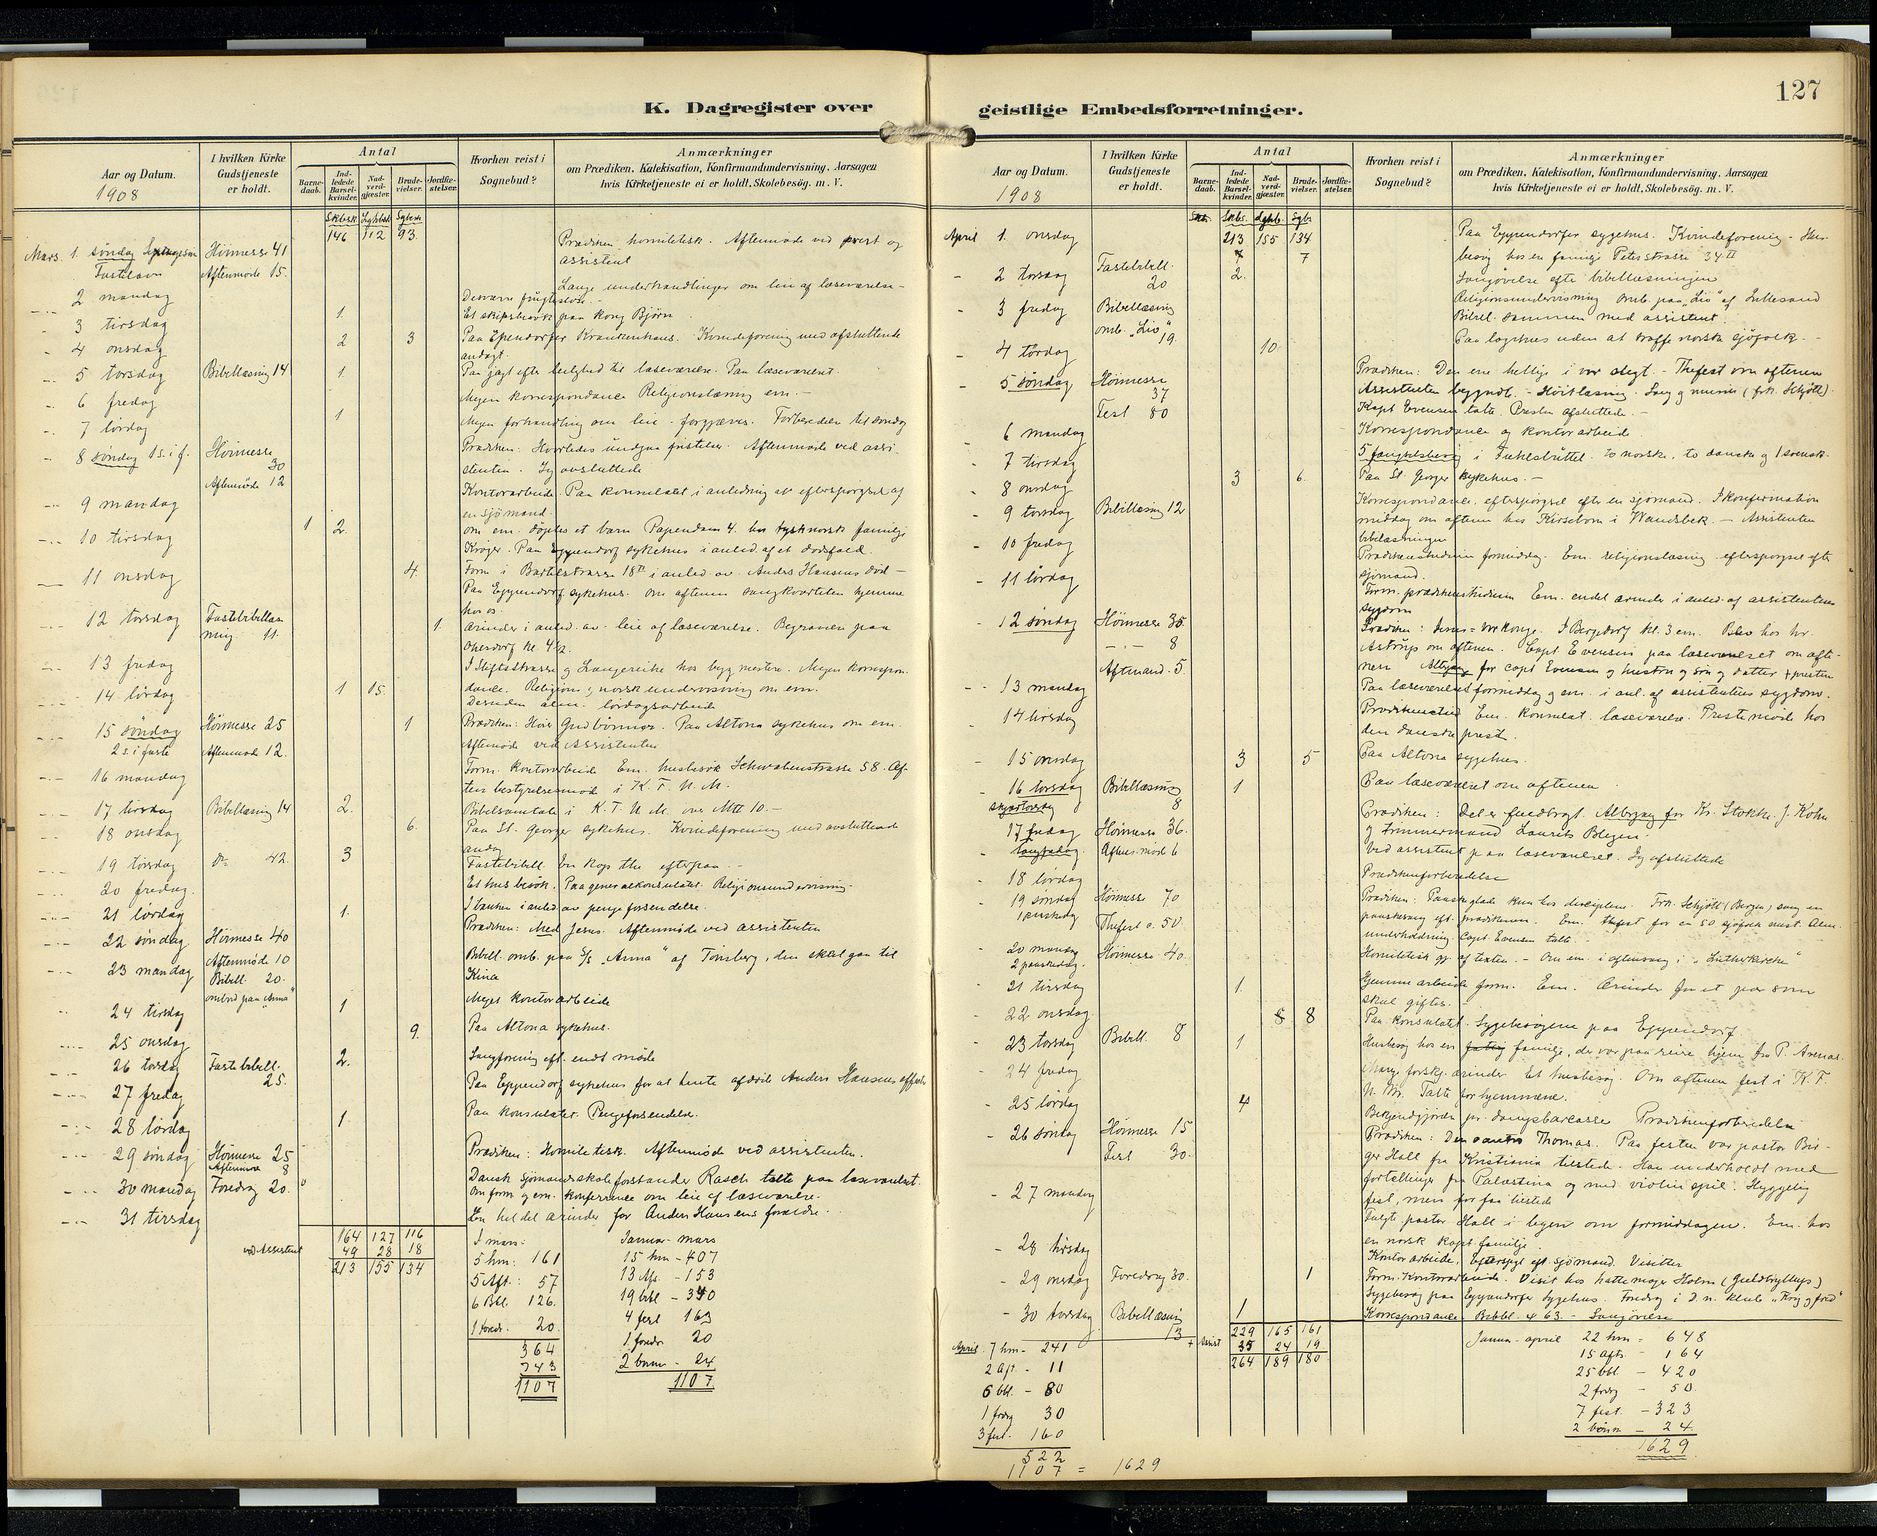 127
K. Dagregister over
Aar og Datum.
1908
I hvilken Kirke
Gudstjeneste
er holdt.
Antal
Barne-
daab.
Ind-
ledede
Barsel-
kvinder.
Nad-
verd-
gjæster.
Brude-
vielser.
Jordfæ-
stelser.
Hvorhen reist i
Sognebud?
Anmærkninger
om Prædiken, Katekisation, Konfirmandundervisning, Aarsagen
hvis Kirketjeneste ei er holdt, Skolebesøg. m. V.
146 112 93.
Mars. 1. søndag Høimesse 41 Prædiken homiletisk. Aftenmøde ved prest og
Fastelavn Aftenmøde 15. assistent
2 mandag Lange underhandlinger om leie af læseværelse -
3 tirsdag 1. Et skibsbesøk paa Kong Bjørn
4 onsdag 2 3 Paa Ependorfer Krankenhaus. Kvindeforening med afsluttende
andagt.
5 torsdag Bibellæsning 14 1. Paa jagt efter leilighed til læseværelse. Paa læseværelset
6 fredag Megen korrespondance Religionslæsning em. -
7 lørdag 1 Megen forhandling om leie - forgjæves. Forberedelse til søndag
8 søndag 1 s. i f. Høimesse 30 Prædiken: Hvorledes undgaa fristelser. Aftenmøde ved assi-
Aftenmøde 12 stenten. Jeg avsluttede
9 mandag Kontorarbeide. Paa konsulatet i anledning af efterspørgsel af
en sjømand.
10 tirsdag 1 2. Om em. døptes et barn Papendam 4. hos tysknorsk familje
Krøger. Paa Eppendorf sykehus i anled. af et dødsfald.
11 onsdag 4. Form i Bartelstrasse 18 II i anled. av Anders Hansens død -
Paa Eppendorf sykehus. Om aftenen sangkvartetten hjemme
hos os.
12 torsdag Fastebibellæs 1. Ærinder i anled. av leie af læseværelse. Begravelse paa
ning 11. Ohlsdorf kl. 4 1/2.
13 fredag I Stiftsstrasse og Langereihe hos bygmestere. Megen korrespon-
14 lørdag 1 15. dance. Religions og norskundervisning om em.
Desuden alm. lørdagsarbeide
15 søndag Høimesse 25 1 Prædiken: Hør Gud bønnen. Paa Altona sykehus om em.
2 s. i faste Aftenmøde 12. Aftenmøde ved Assistenten
16 mandag Form. kontorarbeide Em. husbesøk Schwabenstrasse 58. Af-
ten bestyrelsesmøde i K. F. U. M.
17 tirsdag Bibellæsning 14 2. Bibelsamtale i K. F. U. M. over Mtt 10. -
18 onsdag 6. Paa St. Georger sykehus. Kvindeforening med avsluttende
andag
19 torsdag do 42. 3 Fastebibell. En kop the efterpaa -
20 fredag. Et husbesøk. Paa generalkonsulatet. Religionsundervisning.
21 lørdag 1. I banken i anled. av pengeforsendelse.
22 søndag Høimesse 40 Prædiken: Med Jesus. Aftenmøde ved assistenten
Aftenmøde 10
23 mandag Bibell. 20. Bibell. omb. paa S/S "Anna" af Tønsberg, den skal gaa til
ombord paa "Anna" Kina
24 tirsdag 1 Meget kontorarbeide
25 onsdag 9. Paa Altona sykehus.
26 torsdag Fastebibell. 25. 2. Sangforening eft. endt møde
27 fredag Paa Eppendorf sykehus for at hente afdøde Anders Hansens
28 lørdag 1 Paa konsulatet. Pengeforsendelse.
29 søndag Høimesse 25 Prædiken: Homiletisk. Aftenmøde ved assistenten.
Aftenmøde 8
30 mandag Foredrag 20. Dansk sjømandsskoleforstander Rasch talte paa læseværelset.
Om form og em. konferance om leie af læseværelse.
31 tirsdag En hel del ærinder for Anders Hansens forældre.
164 127 116
ved Assistent 49 28 18
213 155 134
I mars:
5 hm: 161
5 Aft: 57
6 Bbl. 126.
1 foredr. 20.
364
743
1107
Januar - mars
15 hm - 407
13 Af. - 153
19 bbl - 340
4 fest 163
1 foredr 20
2 barn - 24
1107
geistlige Embedsforretninger.
Aar og Datum.
1908
I hvilken Kirke
Gudstjeneste
er holdt.
Antal
Barne-
daab.
Ind-
ledede
Barsel-
kvinder.
Nad-
verd-
gjæster.
Brude-
vielser.
Jordfæ-
stelser.
Hvorhen reist i
Sognebud?
Anmærkninger
om Prædiken, Katekisation, Konfirmandundervisning, Aarsagen
hvis Kirketjeneste ei er holdt, Skolebesøg. m. V.
213 155 134
April 1. onsdag 7 Paa Eppendorfer sygehus. Kvindeforening - Hus-
besøg hos en familje Peterstrasse 34 II
2 torsdag Fastebibell. 20 2. Sangøvelse efter bibellæsningen
3 fredag Bibellæsning Religionsundervisning Omb. paa "Liv" af Lillesand
omb. "Liv" 19. Bibell. sammen med assistent.
4 lørdag 10 Paa logihus uden at træffe norske sjøfolk. -
5 søndag Høimesse 37 Prædiken: Den ene hellige i vor slegt. - Thefest om aftenen
Fest 80 Assistenten begyndte - Høitlæsning. Sang og musik (frk. Schjøtt).
Kapt Evensen talte. Presten afsluttede. -
6 mandag Korrespondance og kontorarbeide.
7 tirsdag 5 fangebesøg i Fuhlsbüttel. to norske, to danske og 1 svensk.
8 onsdag 3 6. Paa St. Georger sykehus. -
9 torsdag Bibellæsning 12 Korrespondance. efterspørgsel efter en sjømand. I konfirmation
middag om aftenen hos Kirseborn i Wandsbek. - Assistenten
bibellæsningen
10 fredag Prædikenstudium formiddag. Em. religionslæsning efterspørgsel efter
sjømand.
11 lørdag Form. prædikenstudium Em. endel ærinder i anled. af assistentens
sygdom
12 søndag Høimesse 35 Prædiken: Jesus = vor konge. I Bergedorf kl. 3 em. Blev hos hr.
8 Astrups om aftenen. Capt. Evensen paa læseværelset om afte-
Aftenand. 5 nen Altergang for capt Evensen og hustru og søn og datter + presten
13 mandag Paa læseværelset formiddag og em. i anl. af assistentens sygdom.
14 tirsdag Em. konsulat. læseværelse. Prestemøde hos
den danske prest.
15 onsdag 3 5 Paa Altona sygehus.
16 torsdag Bibellæsning 8 1 Paa læseværelset om aftenen
skjærtorsdag
17 fredag Høimesse 36. Prædiken: Det er fuldbragt. Altergang for Kr. Stokke. J. Kohn
langfredag. Aftens. møde 6 og tømmermand Laurits Blegen.
Ved assistent paa læseværelset. Jeg afsluttede
18 lørdag Prædikenforberedelse
19 søndag Høimesse 70 Prædiken: Paaskeglade kun hos disciplene. Frk. Schjøtt (Bergen) sang en
1 paaskedag Thefest c. 50. paaskesang eft. prædikenen. Em. thefest for en 50 sjøfolk mest. Alm.
underholdning. Capt. Evensen talte. -
20 mandag Høimesse 40. Homiletisk gj. af teksten. - Om em. i aftensang i "Lutherkirche"
2 paaskedag.
21 tirsdag 1. Hjemmearbeide form. Em. Ærinder for et par som
skal giftes. -
22 onsdag. 8 8 Paa konsulatet. Sygebesøgene paa Eppendorf
23 torsdag Bibell. 8 1 Husbesøg hos en familje, der var paa reise hjem fra P. Arenas.
24 fredag Mange forskj. ærinder. Et husbesøg. Om aftenen fest i K. F.
U. M. Talte for hjemmene.
25 lørdag 4 Prædikenforberedelse
26 søndag Høimesse 15 Prædiken: Den vantro Thomas. Paa festen var pastor Bir-
Fest 30. ger Hall fra Kristiania tilstede. Han underholdt med
fortællinger fra Palæstina og med violin spil. Hyggelig
fest, men for faa tilstede
27 mandag Fulgte pastor Hall i byen om formiddagen. Em. hos
en norsk kapt. familje
28 tirsdag Kontorarbeide, Efterspgl eft. sjømand. Visitter
29 onsdag Foredrag 30. 1 Form. Kontorarbeide. Visit hos hattemager Holm (Guldbryllup)
Sygebesøg paa Eppendorfer Sygehus. Foredrag i D. n. klub "Krig og fred"
30 torsdag Bibellæsning 13 1 Korrespondance Bibbl. 4 63. - Sangøvelse
229 165 161
+ Assist 35 24 19
264 189 180
April. 7 hm - 241
2 aft. - 11
6 bbl. - 80
1 fordrg 30
3 fest. 160
522
1107 = 1629
Januar - april 22 hm = 648
15 aft. - 164
25 bbl - 420
2 fordrg - 50.
7 fest. - 323
2 børn - 24
1629